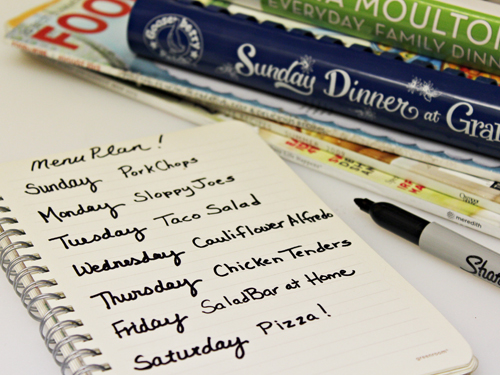 MOULTO
EVERYDAY FAMILY DINN
FOO
Gooseberry
Sunday Dinner at Gra
meredith
Menu Plan!
Sunday Pork Chops
Monday Sloppy Joes
Tuesday Taco Salad
Wednesday Cauliflower Alfredo
Thursday Chicken Tenders
Friday Salad Bar at Home
Saturday Pizza!
Shar